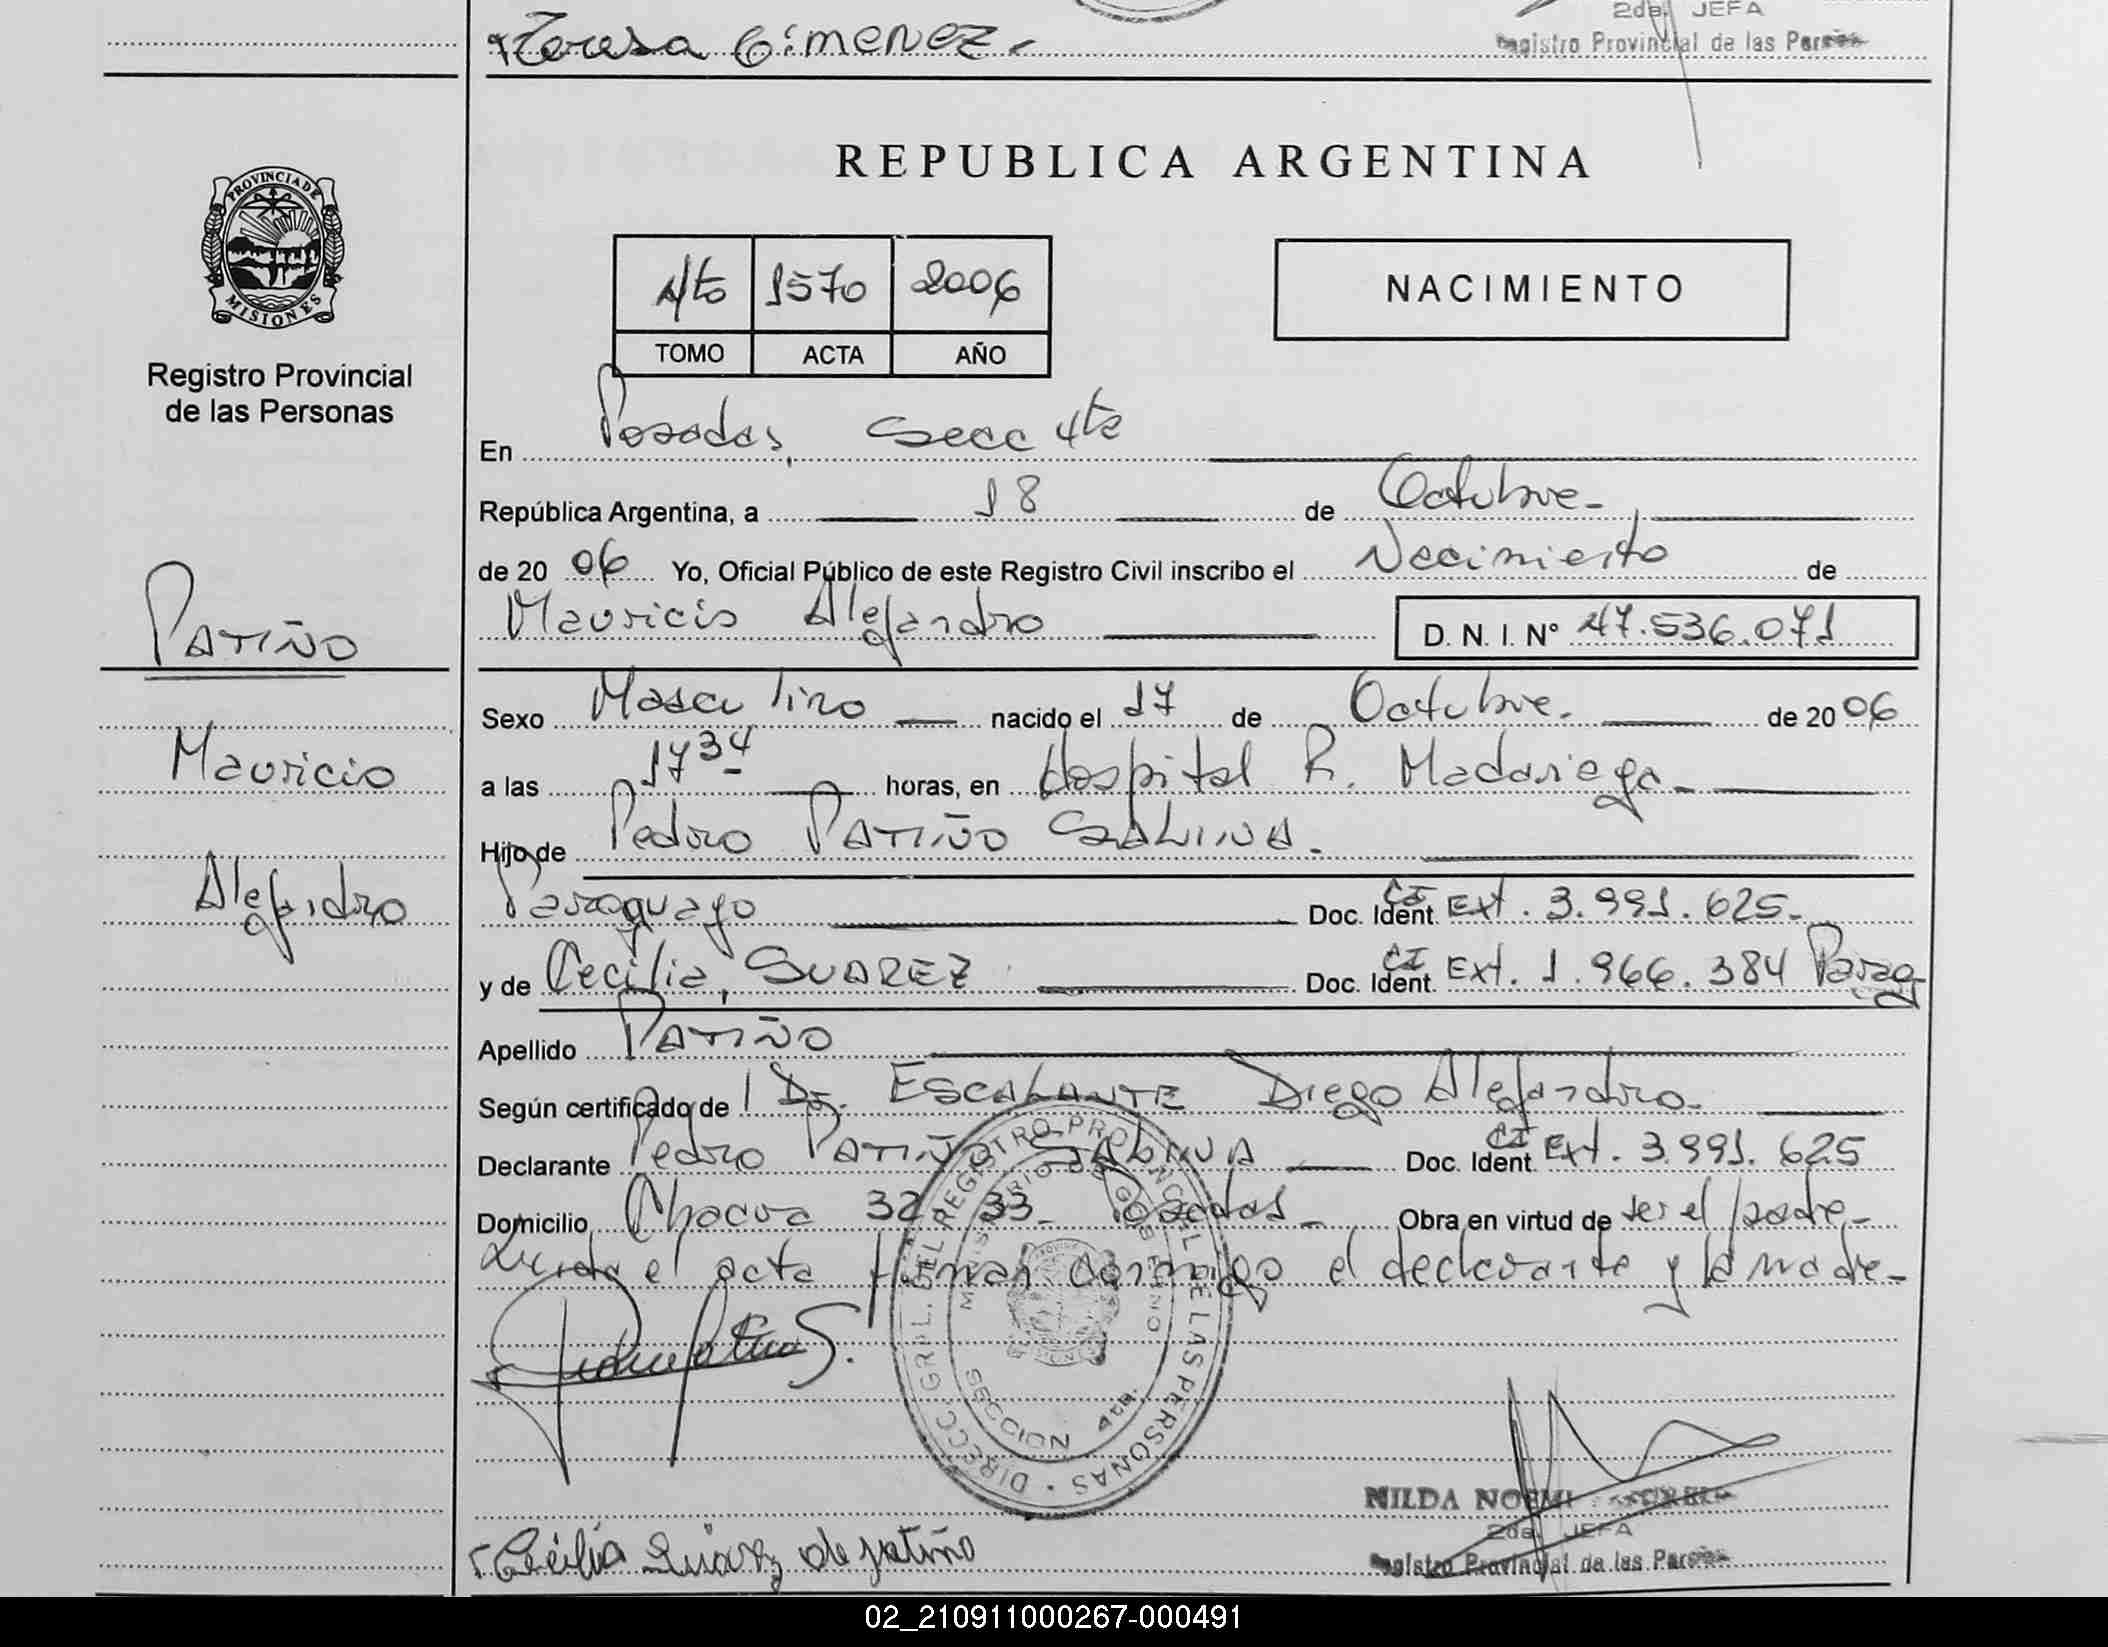 Teresa Gimenez.
2da. JEFA
Registro Provincial de las Personas
PROVINCIA DE
MISIONES
Registro Provincial
de las Personas
PATIÑO
Mauricio
Alejandro
REPUBLICA ARGENTINA
4to 1570 2006
TOMO ACTA AÑO
NACIMIENTO
En Posadas, Secc 4ta
República Argentina, a 18 de Octubre
de 2006 Yo, Oficial Público de este Registro Civil inscribo el Nacimiento de
Mauricio Alejandro D. N. I. N° 47.536.071
Sexo Masculino nacido el 17 de Octubre. de 2006
a las 17 34 horas, en Hospital R. Madariaga
Hijo de Pedro PATIÑO SALINA.
Paraguayo Doc. Ident. CI Ext. 3.991.625
y de Cecilia, SUAREZ Doc. Ident. CI Ext. 1.966.384 Parag
Apellido PATIÑO
Según certificado de Dr. ESCALANTE Diego Alejandro
Declarante Pedro PATIÑO SALINA Doc. Ident. CI Ext. 3.991.625
Domicilio Chacra 32-33 Posadas Obra en virtud de ser el padre
Leida el acta firman conmigo el declarante y la madre
DIRECC. GRAL. DEL REGISTRO PROVINCIAL DE LAS PERSONAS
MINISTERIO DE GOBIERNO
MISIONES
SECCION 4ta.
NILDA NOEMI
2da. JEFA
Registro Provincial de las Personas
Cecilia Suarez de patiño
02_210911000267-000491